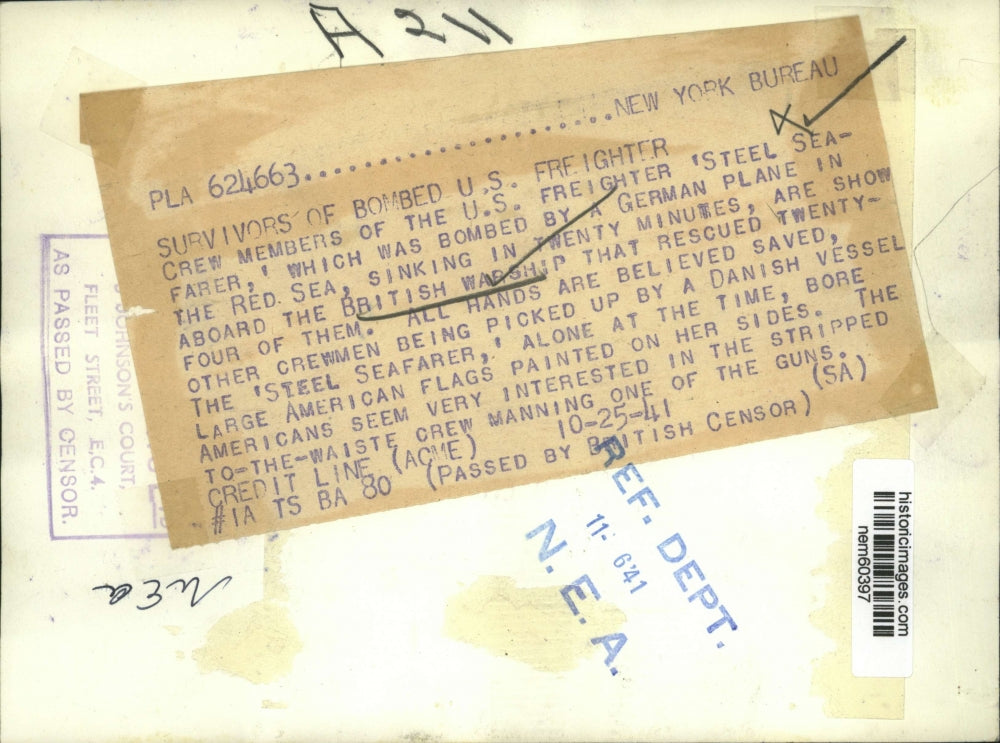 A 211
PLA 624663....................NEW YORK BUREAU
SURVIVORS OF BOMBED U.S. FREIGHTER
CREW MEMBERS OF THE U.S. FREIGHTER 'STEEL SEA-
FARER,' WHICH WAS BOMBED BY A GERMAN PLANE IN
THE RED SEA, SINKING IN TWENTY MINUTES, ARE SHOW
ABOARD THE BRITISH WARSHIP THAT RESCUED TWENTY-
FOUR OF THEM. ALL HANDS ARE BELIEVED SAVED,
OTHER CREWMEN BEING PICKED UP BY A DANISH VESSEL
THE 'STEEL SEAFARER,' ALONE AT THE TIME, BORE
LARGE AMERICAN FLAGS PAINTED ON HER SIDES. THE
AMERICANS SEEM VERY INTERESTED IN THE STRIPPED
TO-THE-WAISTE CREW MANNING ONE OF THE GUNS.
CREDIT LINE (ACME) 10-25-41 (SA)
#IA TS BA 80 (PASSED BY BRITISH CENSOR)
JOHNSON'S COURT,
FLEET STREET, E.C.4.
AS PASSED BY CENSOR.
REF. DEPT.
11- 6'41
N. E. A.
NEA
historicimages.com
nem60397